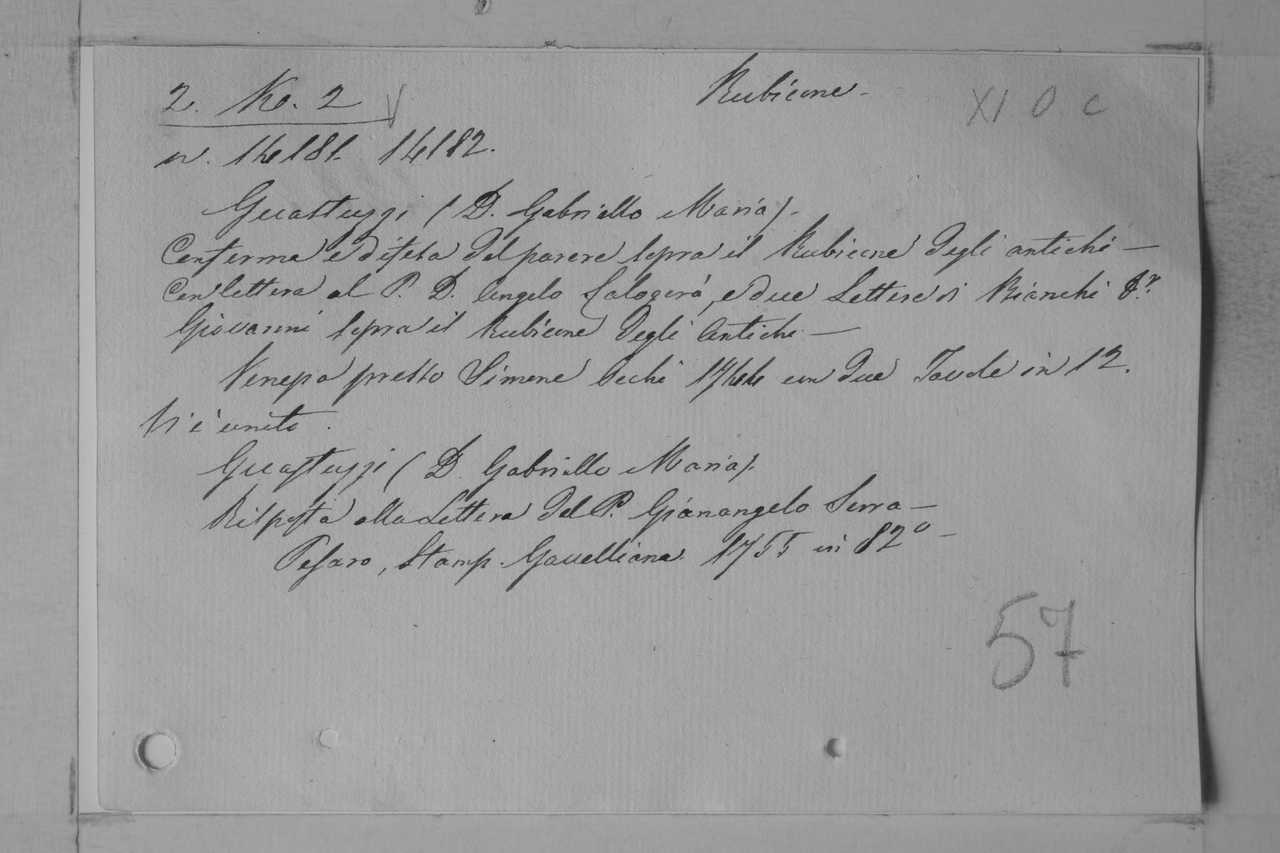 2. Ko. 2
Rubicone -
XI O C
n. 14181. 14182.
Guastuzzi (D. Gabriello Maria).
Conferma e difesa del parere sopra il Rubicone degli antichi —
Con lettera al P. D. Angelo Calogerà, e due Lettere di Bianchi D.r
Giovanni sopra il Rubicone degli Antichi —
Venezia presso Simone Occhi 1744 con due Tavole in 12.
Vi è unito.
Guastuzzi (D. Gabriello Maria).
Risposta alla Lettera del P. Gianangelo Serra —
Pesaro, Stamp. Gavelliana 1755 in 82° -
57